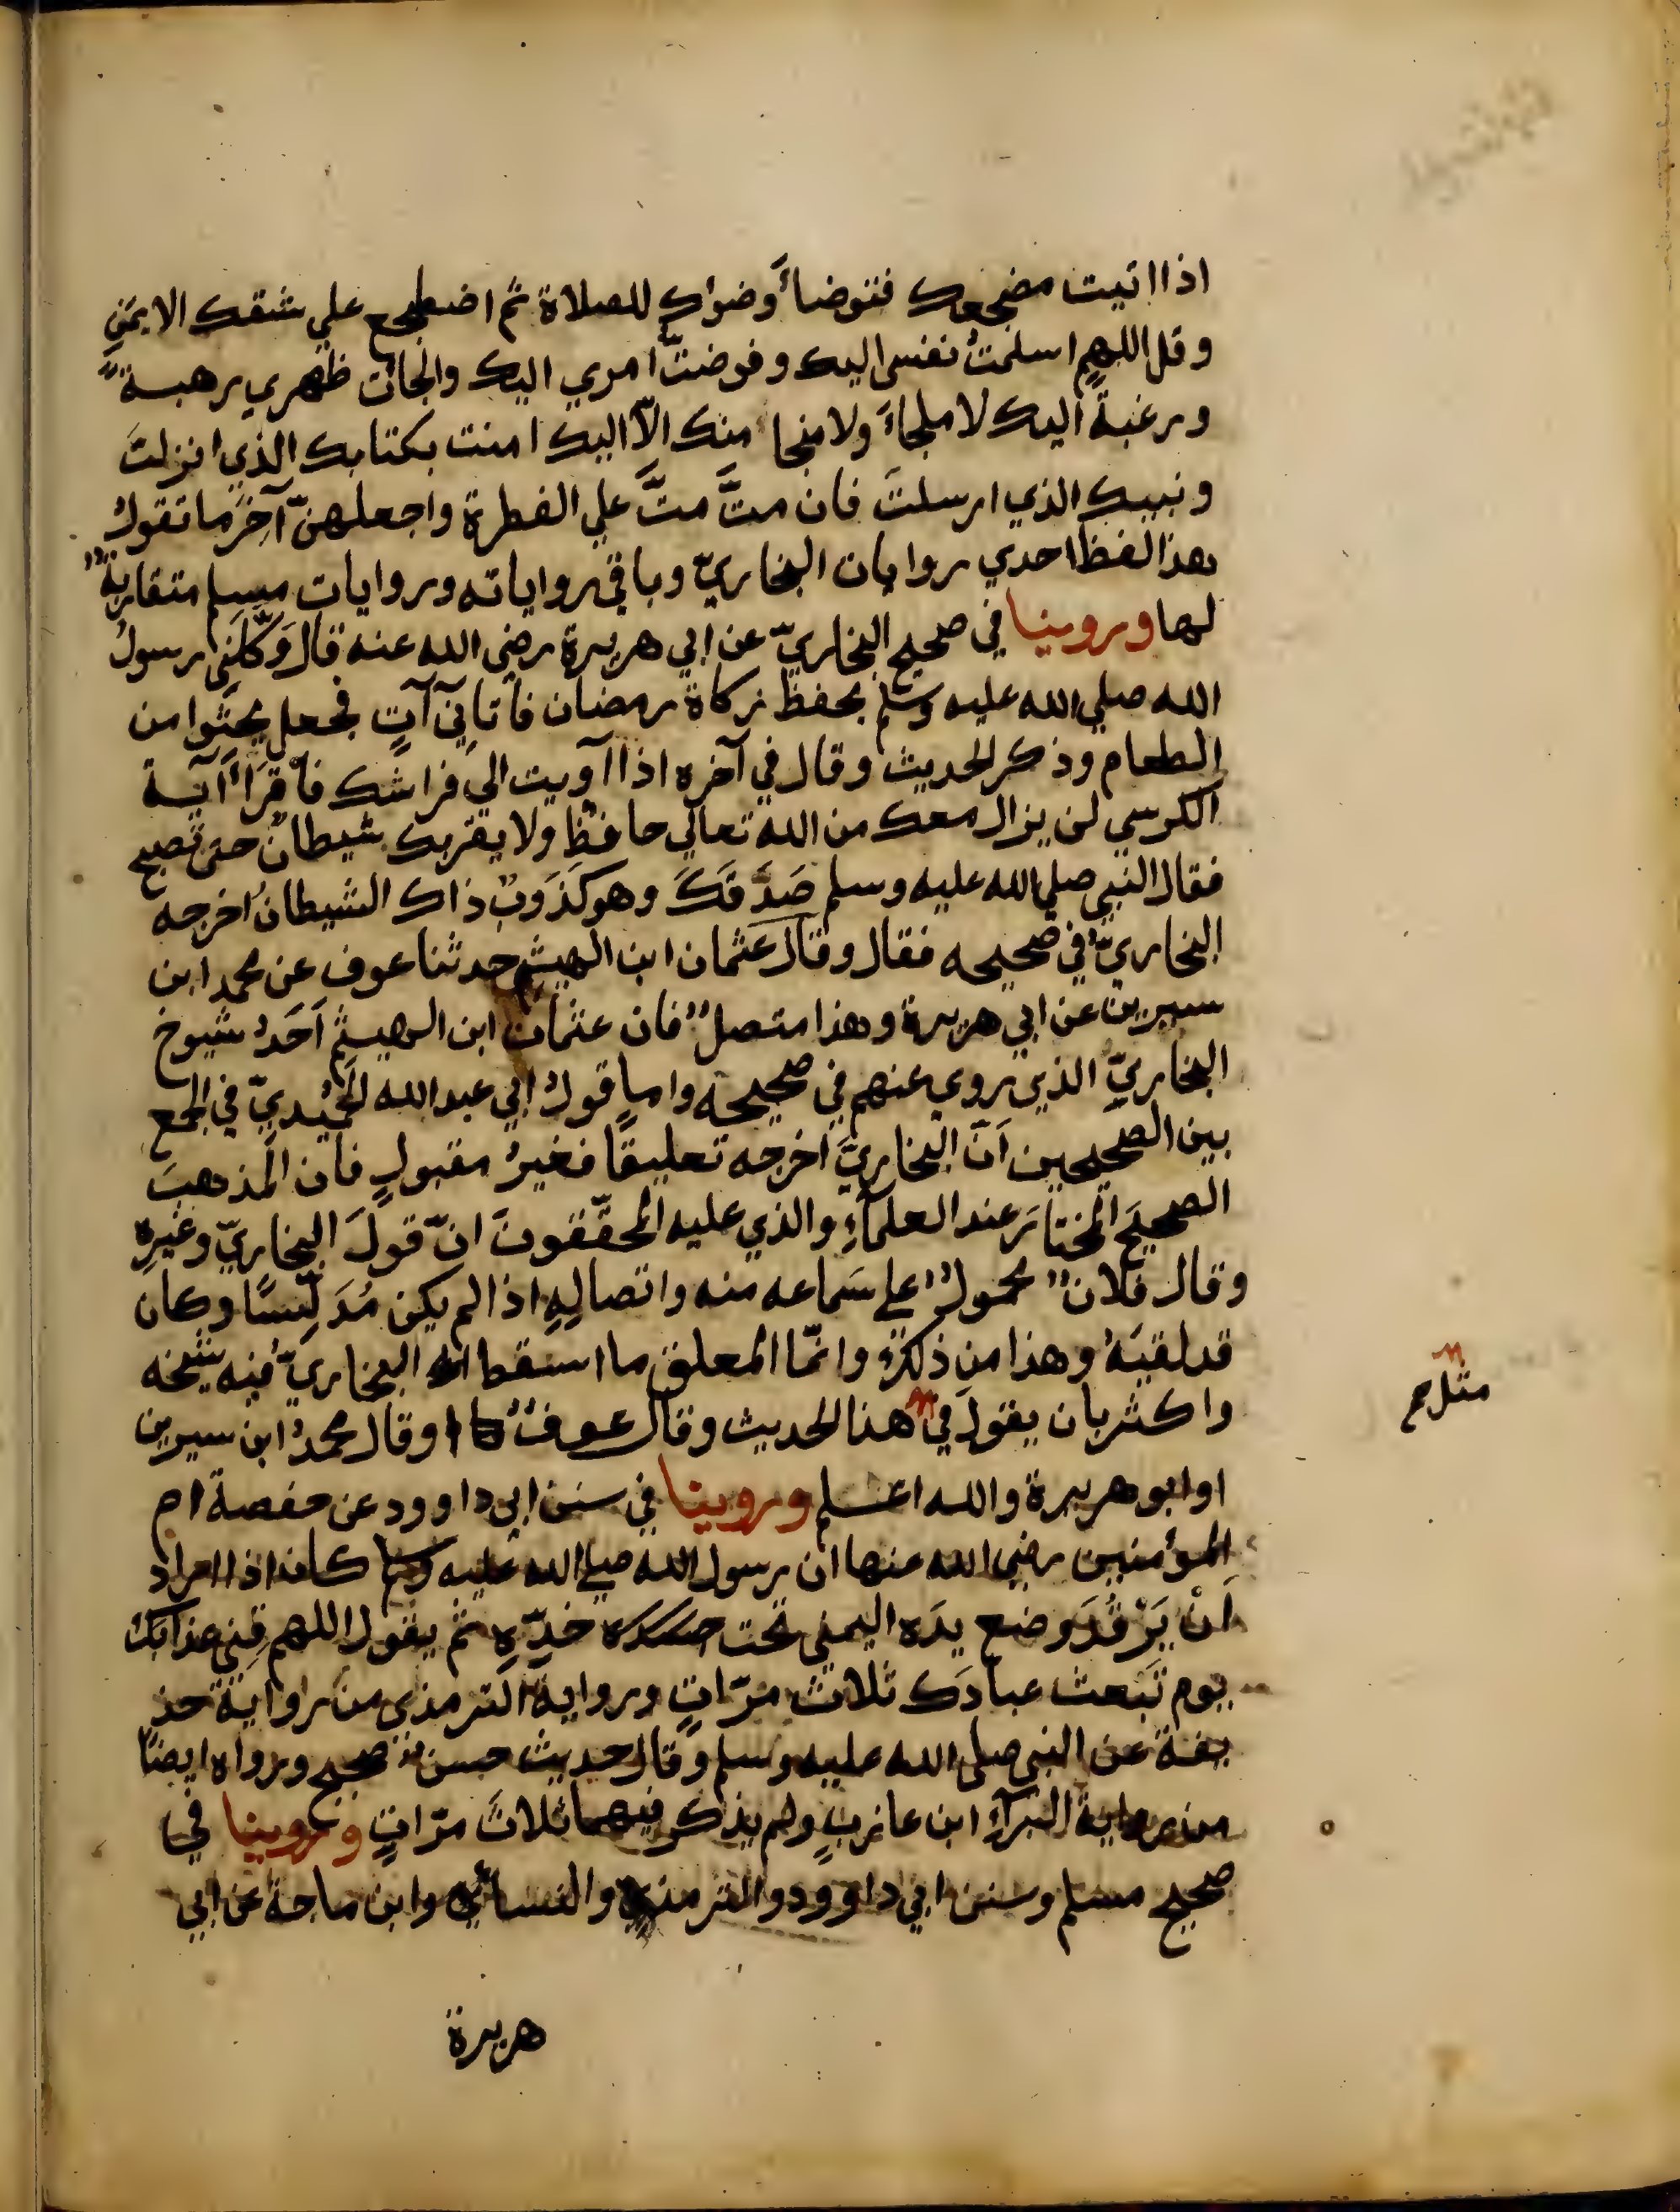 اذا اتيت مضجعك فتوضأ وضوٓك للصلاة ثم اضطجع علي شقك الايمَنِ
وقل اللهم اسلمتُ نفسي اليك وفوضتُ امري اليك والجأت ظهري رهبةً
ورغبةً اليك لا ملجاءَ ولا منجا منك الّا اليك امنت بكتابك الذي انزلتَ
ونبيك الذي ارسلتَ فان متَّ متَّ علي الفطرة واجعلهنّ آخِرَ ما تقولُ
هذا لفظ احدي روايات البخاريّ وباقي رواياته وروايات مسلم متقاربةٌ
لها وروينا في صحيح البخاريّ عن ابي هريرة رضي الله عنه قال وَكّلَنِي رسولُ
الله صلي الله عليه وسلم بحفظ زكاة رمضان فأتاني آتٍ فجعل يحثوا من
الطعام وذكر الحديث وقال في آخره اذا آويت الي فراشك فأقرَأ آيةَ
الكرسي لن يزال معك من الله تعالي حافظٌ ولا يقربك شيطانٌ حتى تصبح
فقال النبي صلي الله عليه وسلم صَدَقَكَ وهو كَذَوبٌ ذاك الشيطانُ اخرجه
البخاريُّ في صحيحه فقال وقال عثمان ابن الهيثم حدثنا عوف عن محمد ابن
سيرين عن ابي هريرة وهذا متصلٌ فان عثمان ابن الهيثم اَحَدُ شيوخ
البخاريّ الذين روي عنهم في صحيحه واما قولُ ابي عبد الله الحُمَيْديّ في الجمع
بين الصحيحين اَنّ البخاريَّ اخرجه تعليقًا فغيرُ مقبولٍ فان المذهبَ
الصحيحَ المختارَ عند العلمآءِ والذي عليه المحقّقونَ انّ قولَ البخاريّ وغيرِه
وقال فلانٌ محمولٌ علي سَماعه منه واتصالِهِ اذا لم يكن مُدَلِّسًا وكان
قد لقيَهُ وهذا من ذلكَ وانّما المعلق ما اسقط البخاريُّ منه شيخه
واكثر بان يقول في هذا الحديث وقال عوفٌ او قال محمدُ ابن سيرين
مثل صح
او ابو هريرة والله اعلم وروينا في سنن ابي داوود عن حفصة ام
المؤمنين رضي الله عنها ان رسول الله صلي الله عليه وسلم كان اذا اراد
اَنْ يَرْقُدَ وضع يدَه اليمني تحت خدِّهِ ثم يقول اللهم قِني عذابَك
يوم تَبعث عبادَك ثلاثَ مرّاتٍ ورواية الترمذي من رواية حذ
يفة عن النبي صلي الله عليه وسلم وقال حديث حسنٌ صحيح ورواه ايضًا
من رواية البرآءِ ابن عازبٍ ولم يذكر فيهما ثلاثَ مرّاتٍ وروينا في
صحيح مسلم وسنن ابي داوود والترمذي والنسائي وابن ماجة عن ابي
هريرة